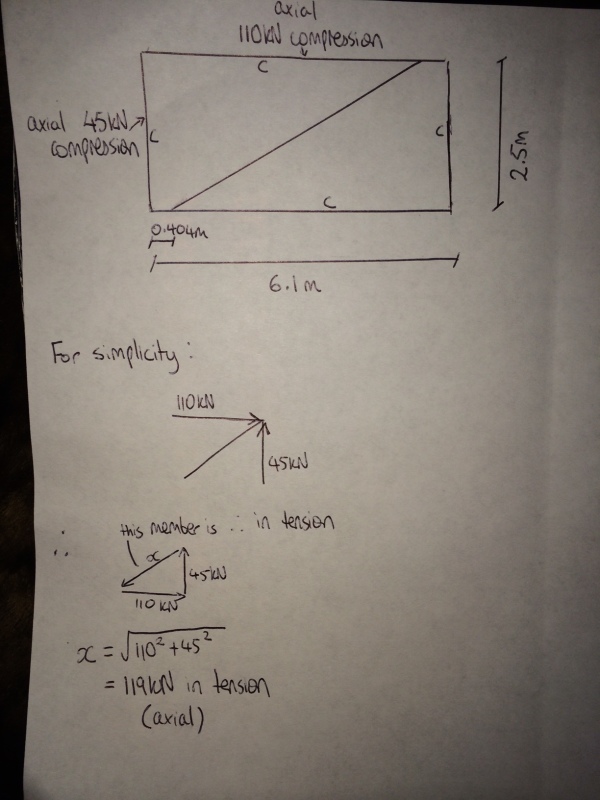 axial
110kN compression
C
axial 45kN
compression
C
C
C
2.5m
0.404m
6.1m
For simplicity:
110kN
45kN
this member is ∴ in tension
∴
x
45kN
110kN
x = √110² + 45²
= 119kN in tension
(axial)